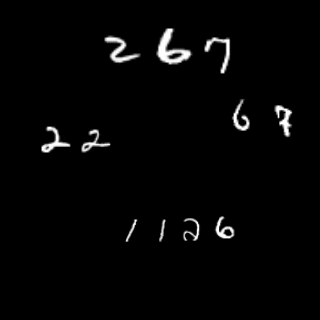 267
67
22
1126